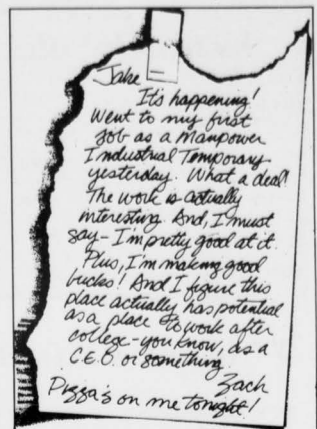 Jake
It's happening!
Went to my first
job as a Manpower
Industrial Temporary
yesterday. What a deal!
The work is actually
interesting. And, I must
say - I'm pretty good at it.
Plus, I'm making good
bucks! And I figure this
place actually has potential
as a place to work after
college - you know, as a
C.E.O. or something.
Zach
Pizza's on me tonight!